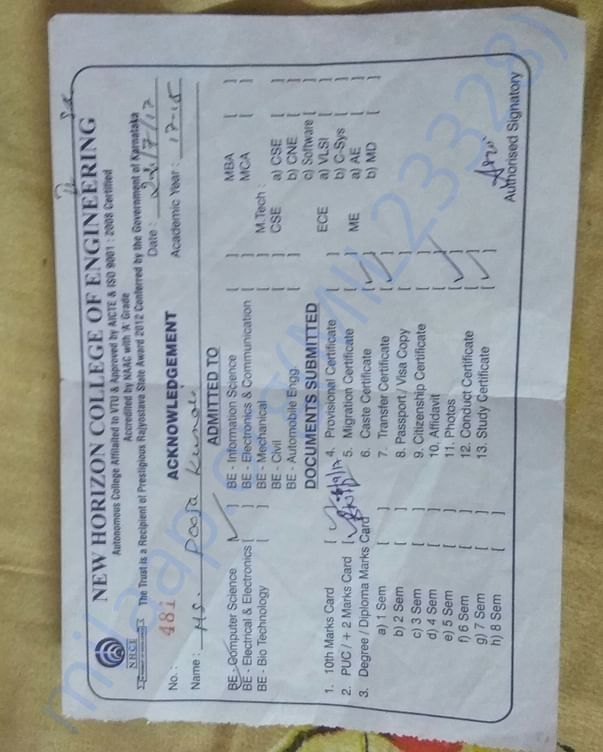 NEW HORIZON COLLEGE OF ENGINEERING
Autonomous College Affiliated to VTU & Approved by AICTE & ISO 9001 : 2008 Certified
Accredited by NAAC with 'A' Grade
The Trust is a Recipient of Prestigious Rajyostava State Award 2012 Conferred by the Government of Karnataka
NHCE
No. : 481
ACKNOWLEDGEMENT
Date : 22/7/17
Name : Ms. Pooja Kumari
Academic Year : 17-18
ADMITTED TO
BE - Computer Science [ ✓ ] BE - Information Science [ ] MBA [ ]
BE - Electrical & Electronics [ ] BE - Electronics & Communication [ ] MCA [ ]
BE - Bio Technology [ ] BE - Mechanical [ ] M.Tech :
BE - Civil [ ] CSE a) CSE [ ]
BE - Automobile Engg. [ ] b) CNE [ ]
c) Software [ ]
DOCUMENTS SUBMITTED
ECE a) VLSI [ ]
b) C-Sys [ ]
ME a) AE [ ]
b) MD [ ]
1. 10th Marks Card [ ✓ ]
2. PUC / + 2 Marks Card [ ✓ ]
3. Degree / Diploma Marks Card
a) 1 Sem [ ]
b) 2 Sem [ ]
c) 3 Sem [ ]
d) 4 Sem [ ]
e) 5 Sem [ ]
f) 6 Sem [ ]
g) 7 Sem [ ]
h) 8 Sem [ ]
4. Provisional Certificate [ ]
5. Migration Certificate [ ]
6. Caste Certificate [ ✓ ]
7. Transfer Certificate [ ✓ ]
8. Passport / Visa Copy [ ]
9. Citizenship Certificate [ ]
10. Affidavit [ ]
11. Photos [ ✓ ]
12. Conduct Certificate [ ]
13. Study Certificate [ ✓ ]
Authorised Signatory
milaap.org(MIL233328)